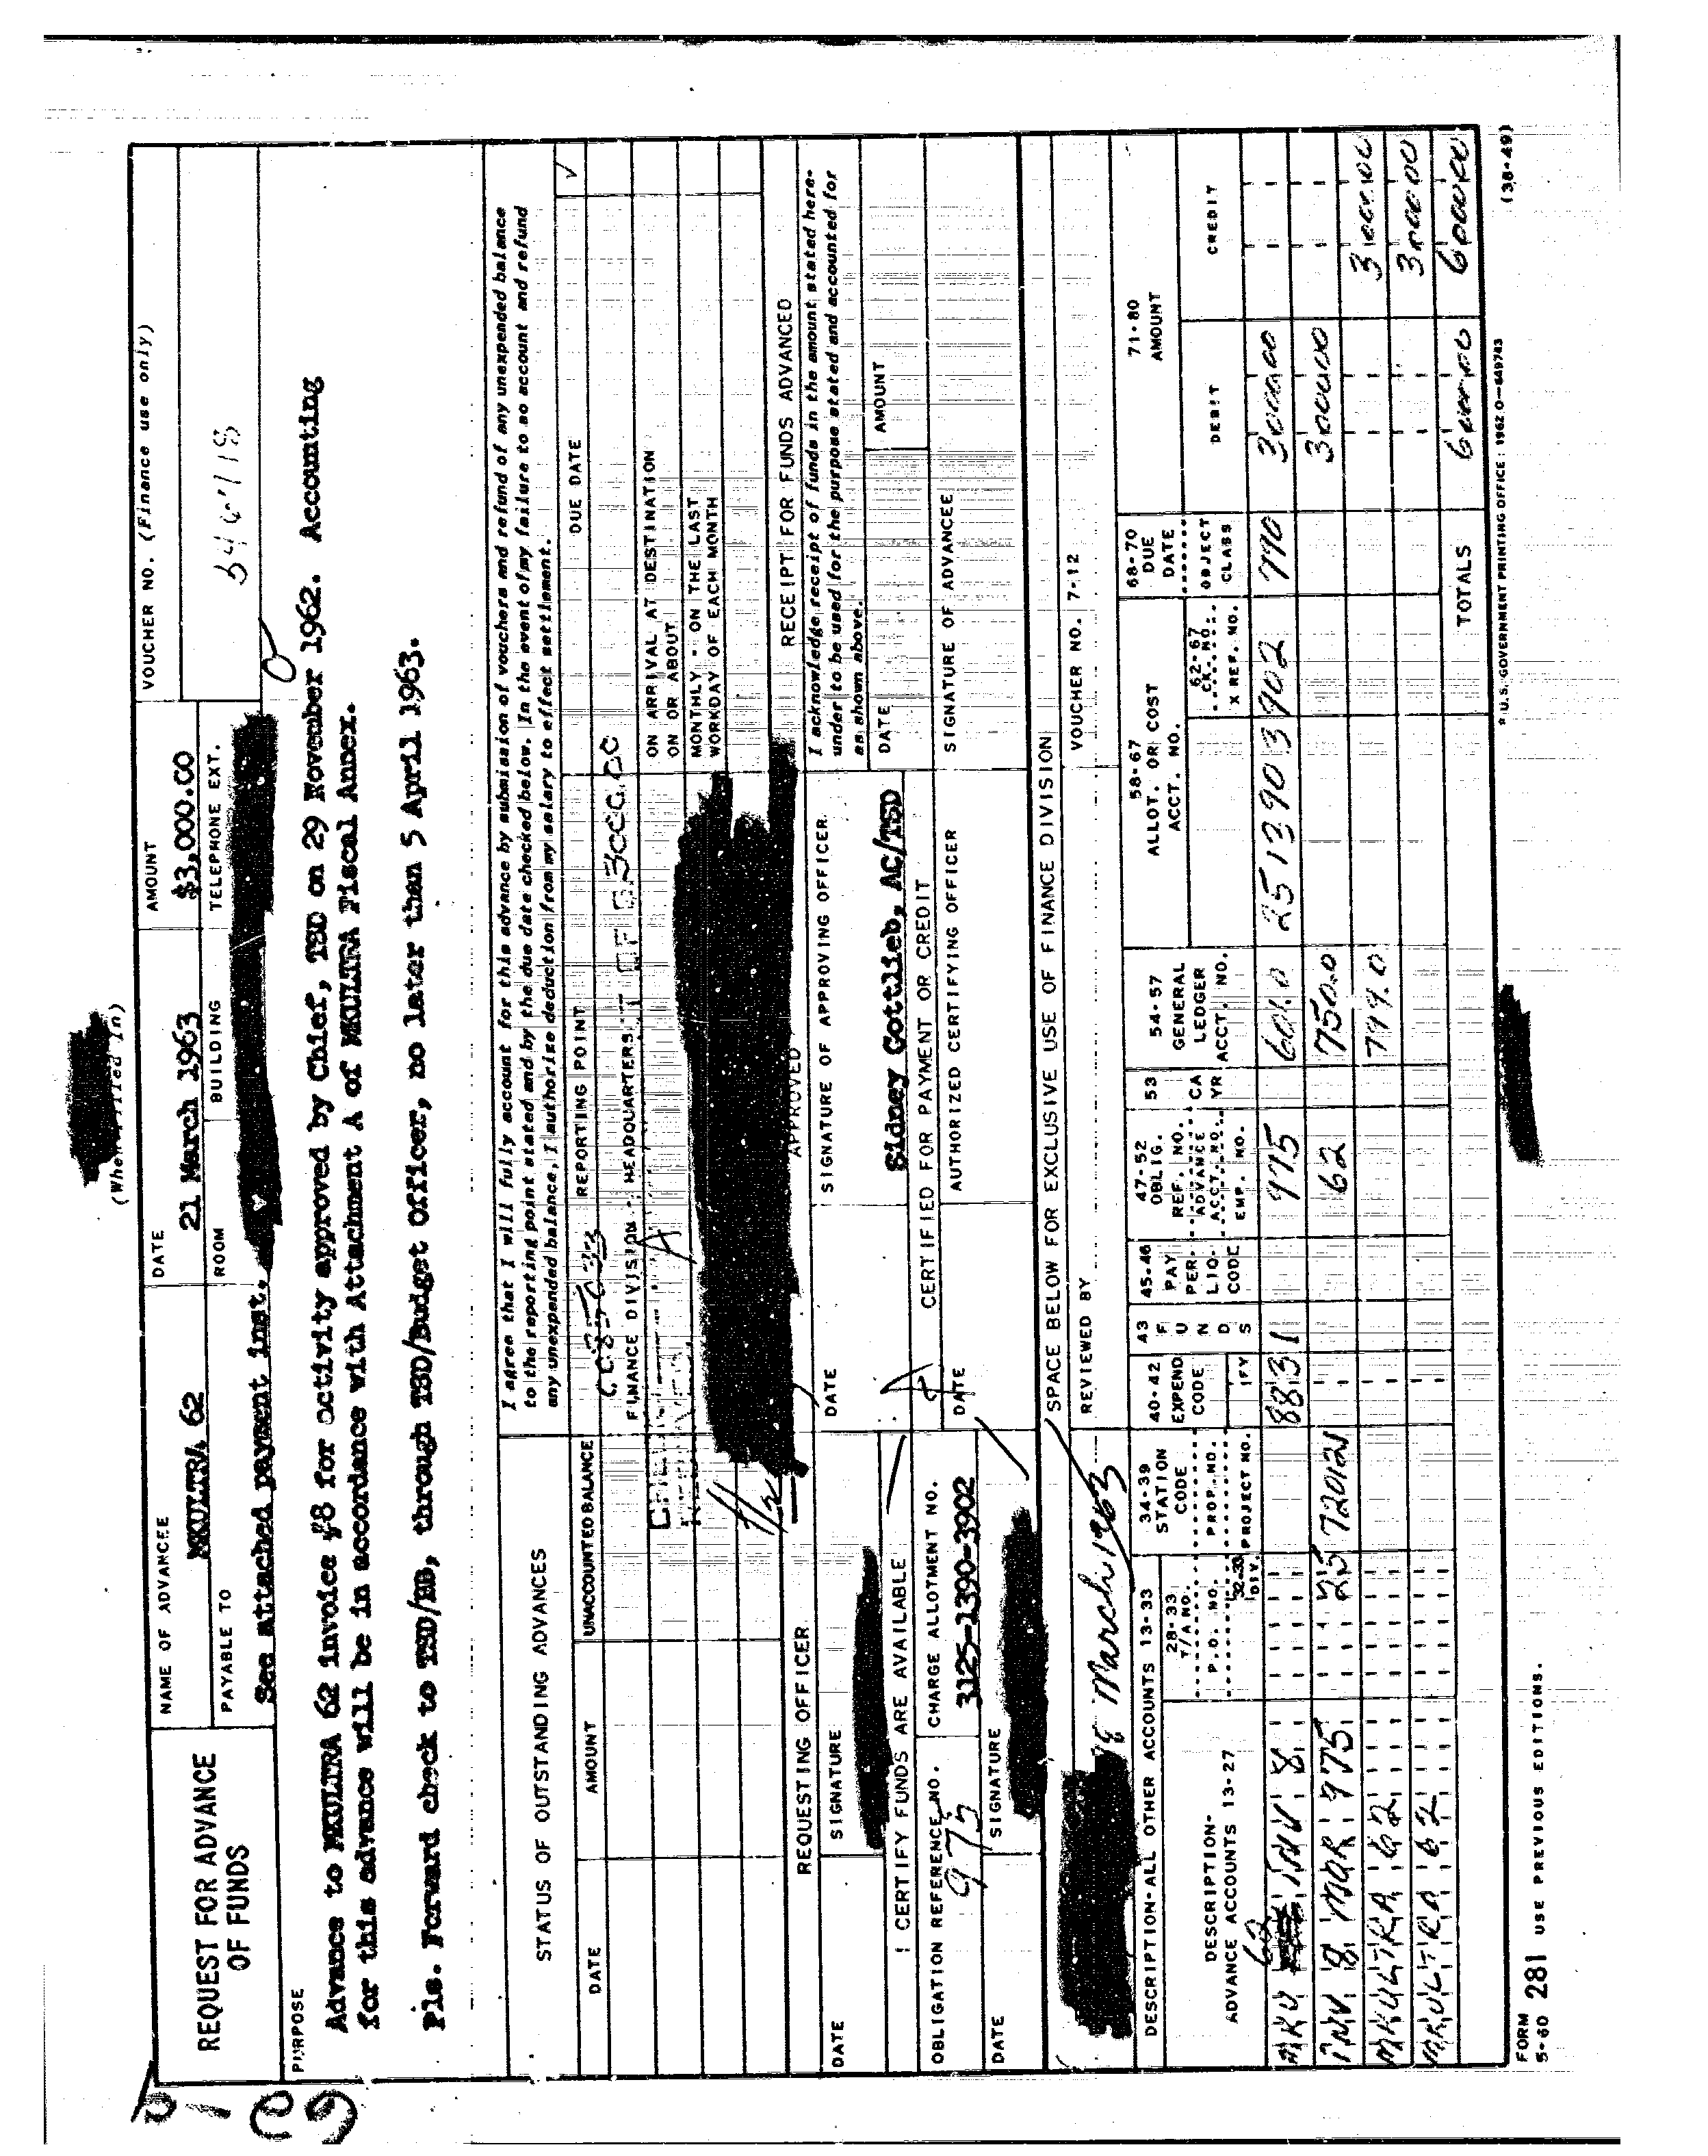 (When Filled In)
REQUEST FOR ADVANCE
OF FUNDS
NAME OF ADVANCEE
MKULTRA 62
DATE
21 March 1963
AMOUNT
$3,000.00
VOUCHER NO. (Finance use only)
PAYABLE TO
See attached payment inst.
ROOM
BUILDING
TELEPHONE EXT.
PURPOSE
Advance to MKULTRA 62 invoice #8 for activity approved by Chief, TSD on 29 November 1962. Accounting
for this advance will be in accordance with Attachment A of MKULTRA Fiscal Annex.
Pls. Forward check to TSD/BB, through TSD/Budget officer, no later than 5 April 1963.
STATUS OF OUTSTANDING ADVANCES
I agree that I will fully account for this advance by submission of vouchers and refund of any unexpended balance
to the reporting point stated and by the due date checked below. In the event of my failure to so account and refund
any unexpended balance, I authorize deduction from my salary to effect settlement.
DATE
AMOUNT
UNACCOUNTED BALANCE
REPORTING POINT
DUE DATE
FINANCE DIVISION - HEADQUARTERS
3000.00
ON ARRIVAL AT DESTINATION
ON OR ABOUT
MONTHLY - ON THE LAST
WORKDAY OF EACH MONTH
REQUESTING OFFICER
APPROVED
RECEIPT FOR FUNDS ADVANCED
DATE
SIGNATURE
DATE
SIGNATURE OF APPROVING OFFICER
Sidney Gottlieb, AC/TSD
I acknowledge receipt of funds in the amount stated here-
under to be used for the purpose stated and accounted for
as shown above.
DATE
AMOUNT
I CERTIFY FUNDS ARE AVAILABLE
CERTIFIED FOR PAYMENT OR CREDIT
OBLIGATION REFERENCE NO.
975
CHARGE ALLOTMENT NO.
3125-1390-3902
DATE
AUTHORIZED CERTIFYING OFFICER
SIGNATURE OF ADVANCEE
DATE
SIGNATURE
SPACE BELOW FOR EXCLUSIVE USE OF FINANCE DIVISION
28 March 1963
REVIEWED BY
VOUCHER NO. 7-12
DESCRIPTION-ALL OTHER ACCOUNTS 13-33
DESCRIPTION-
ADVANCE ACCOUNTS 13-27
28-33
T/A NO.
P.O. NO.
32-33
DIV.
34-39
STATION
CODE
PROP. NO.
PROJECT NO.
40-42
EXPEND
CODE
FY
43
FUNDS
45-46
PAY
PER.
LIQ.
CODE
47-52
OBLIG.
REF. NO.
ADVANCE
ACCT. NO.
EMP. NO.
53
CA
YR
54-57
GENERAL
LEDGER
ACCT. NO.
58-67
ALLOT. OR COST
ACCT. NO.
62-67
CK. NO.
X REF. NO.
68-70
DUE
DATE
OBJECT
CLASS
71-80
AMOUNT
DEBIT
CREDIT
MKU 62 INV 8 8831 975 601.0 2513903902 770 300000
INV 8 MAR 975 62 750.0 300000
MKULTRA 62 794.0 300000
MKULTRA 62 300000
TOTALS 600000 600000
FORM
5-60 281 USE PREVIOUS EDITIONS.
* U.S. GOVERNMENT PRINTING OFFICE : 1962 O-649743
(38-49)